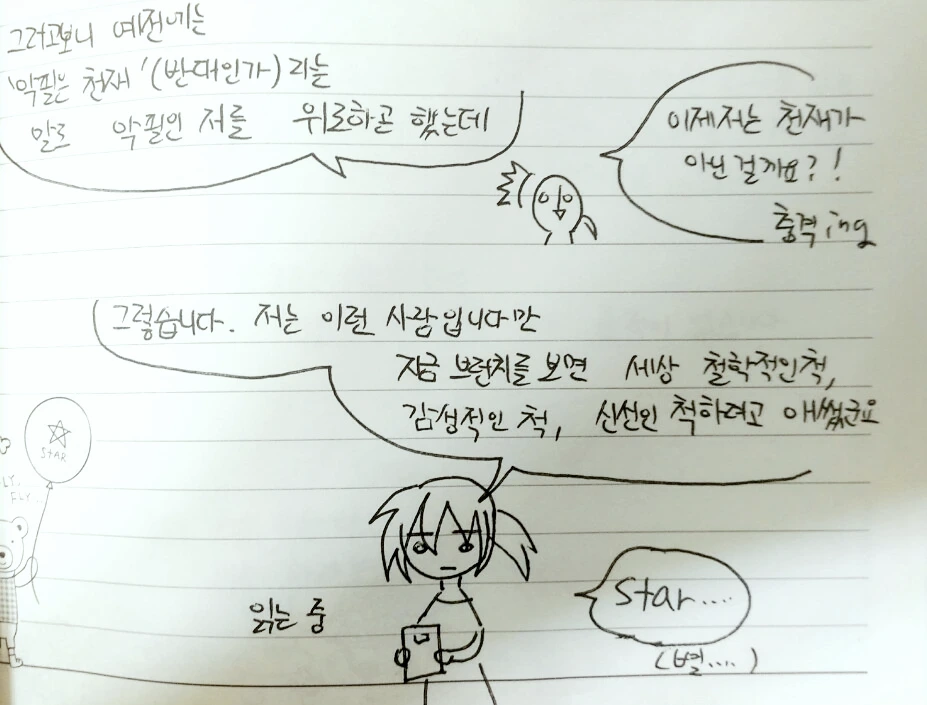 그러고보니 예전에는
'악필은 천재' (반대인가) 라는
말로 악필인 저를 위로하곤 했는데
이제저는 천재가
아닌걸까요?!
충격 ing
그렇습니다. 저는 이런 사람입니다만
지금 브런치를 보면 세상 철학적인척,
감성적인 척, 신선인 척하려고 애썼군요
STAR
LY.
FLY
읽는 중
Star....
(별....)